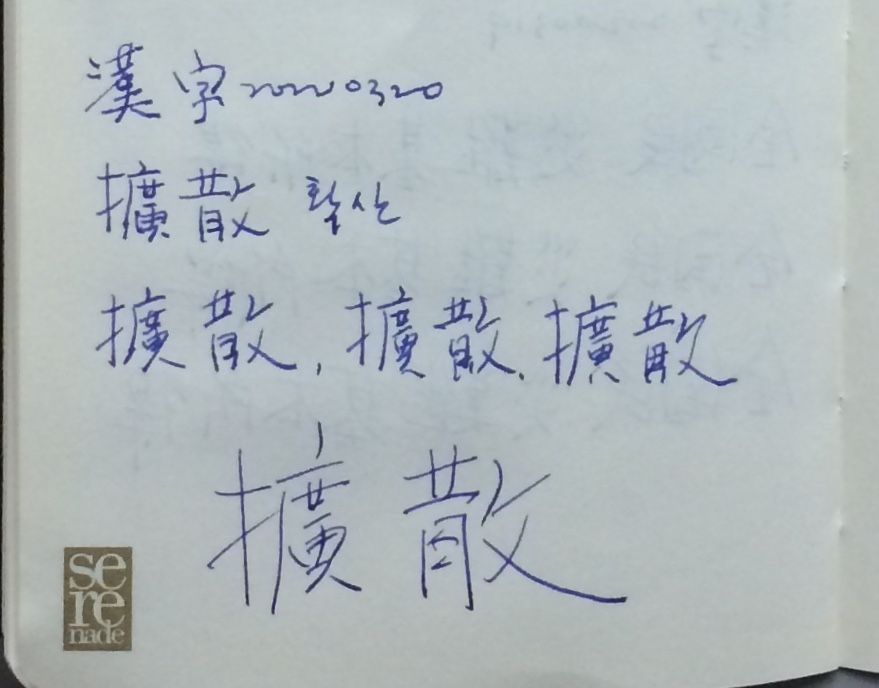 漢字20220320
擴散 확산
擴散, 擴散, 擴散
擴散
se
re
nade